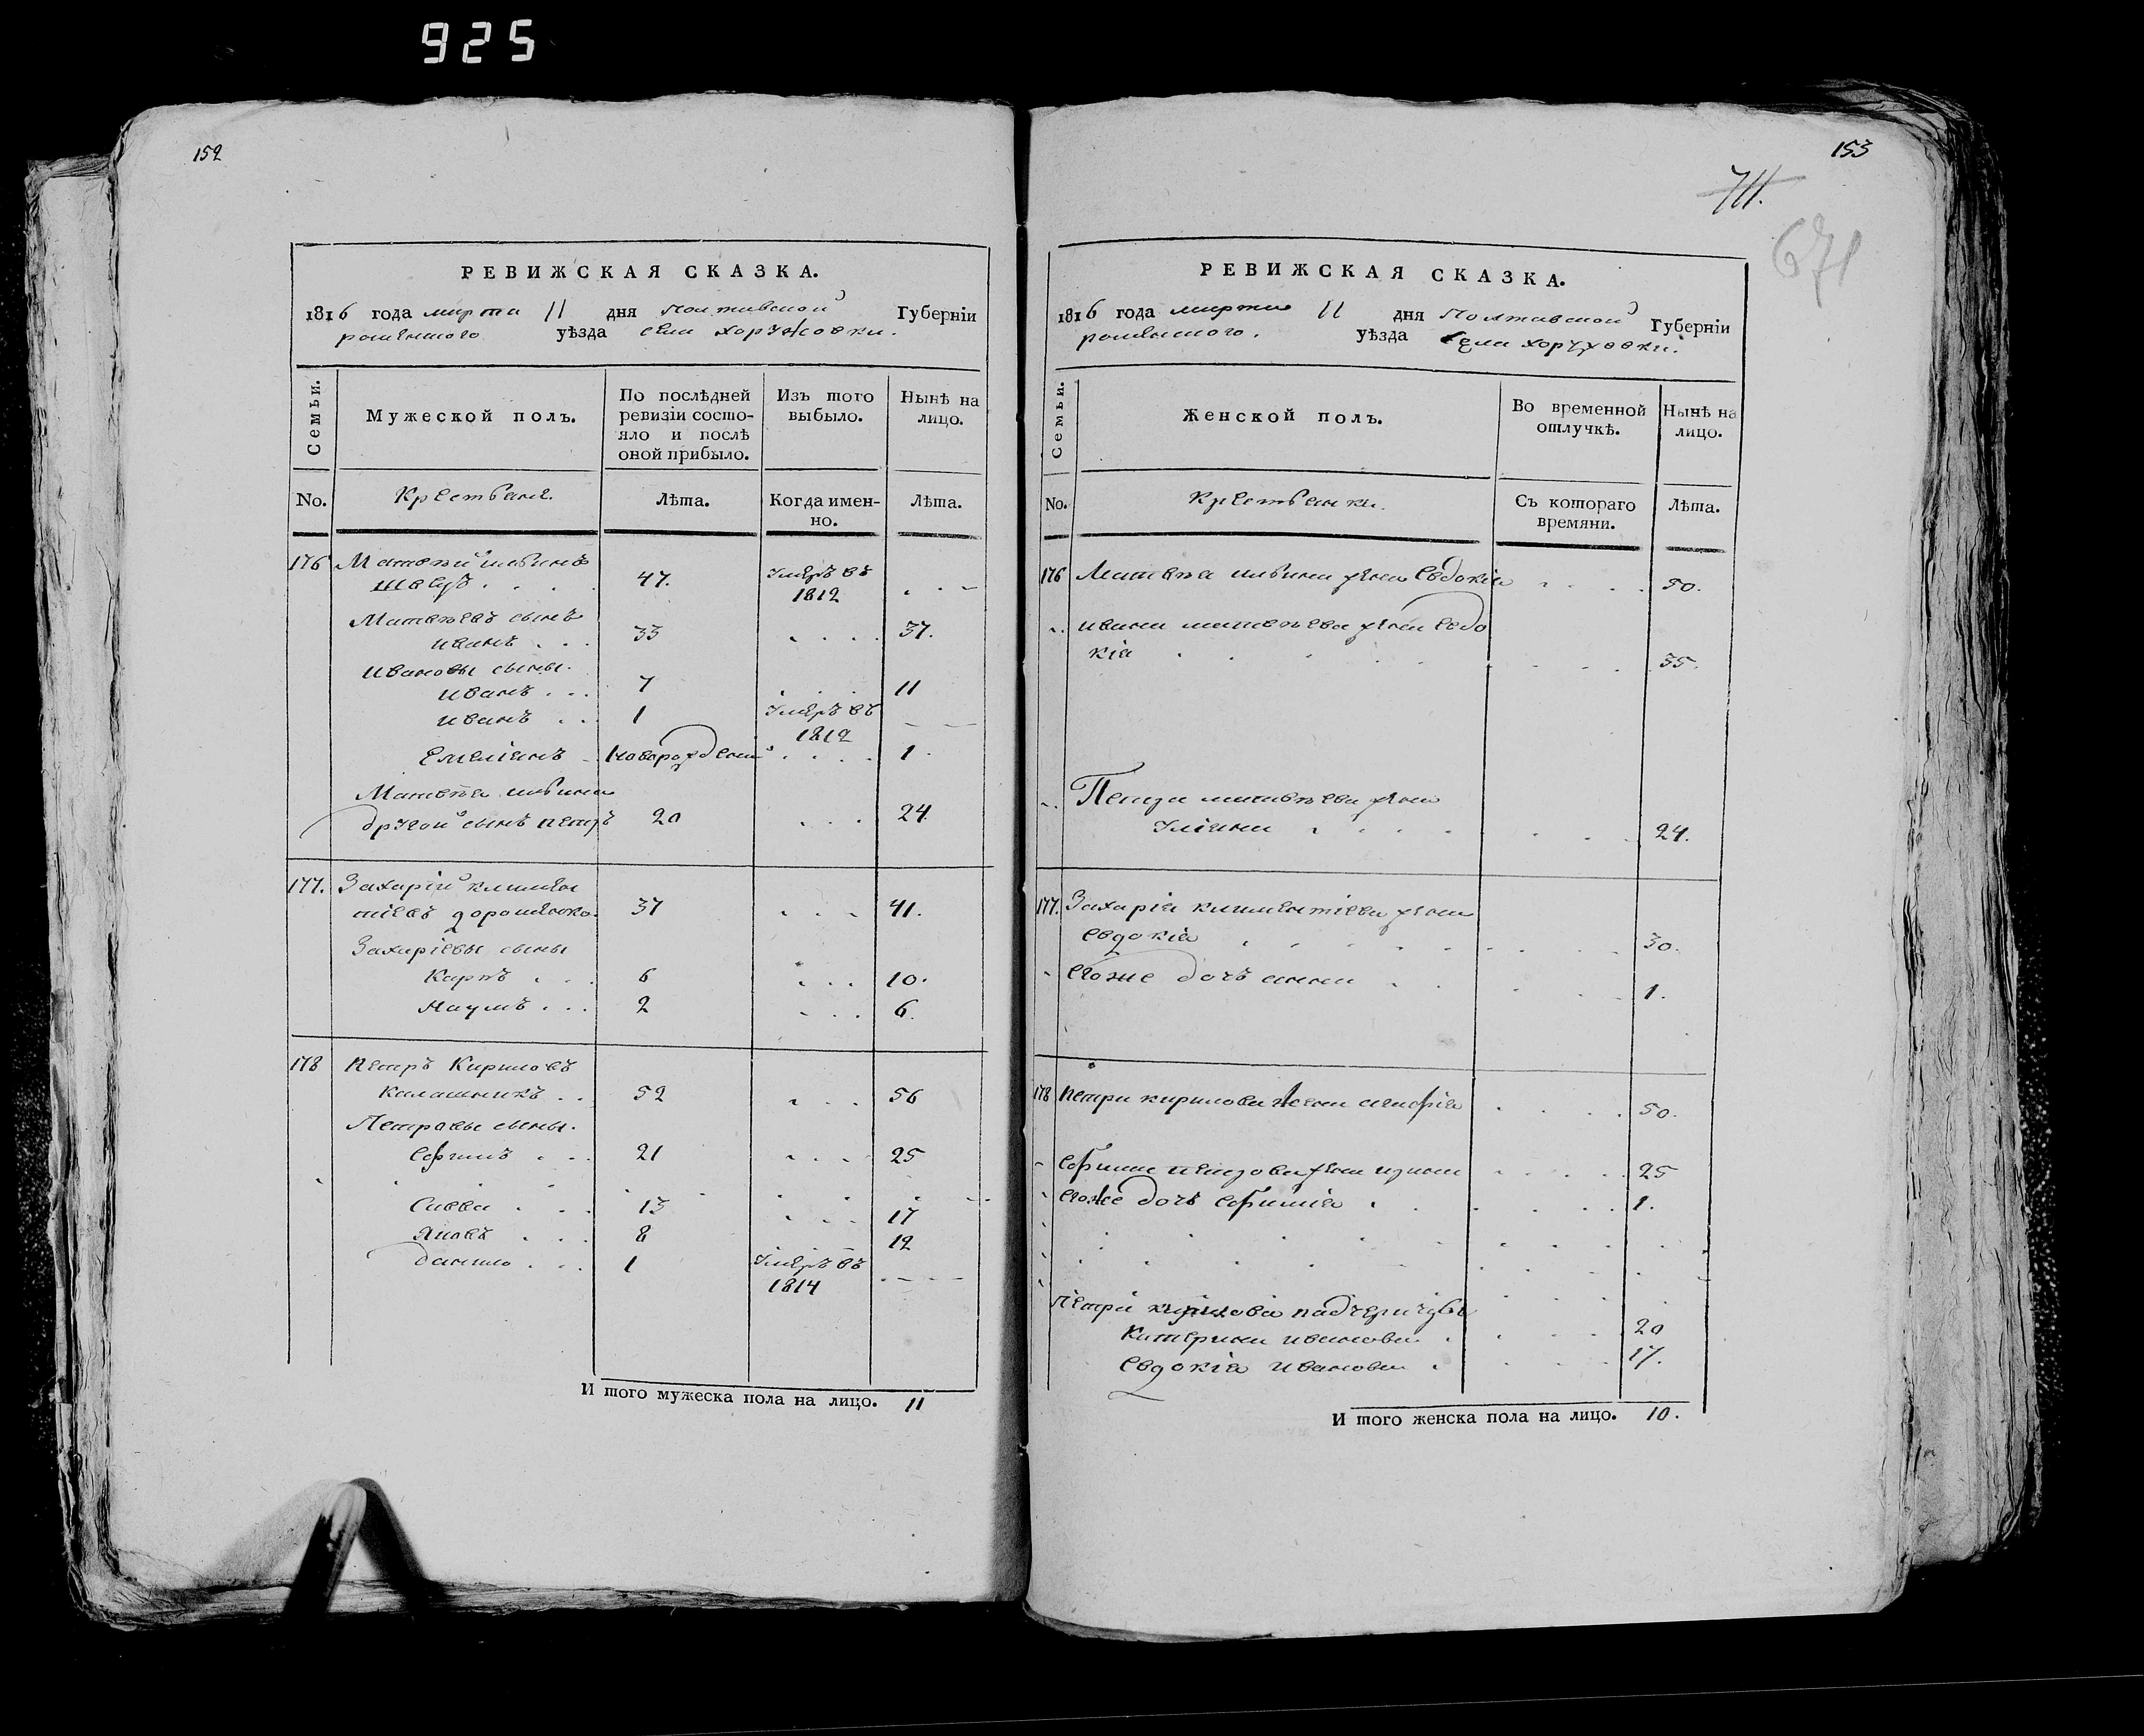 925
152
РЕВИЖСКАЯ СКАЗКА.
1816 года марта 11 дня Полтавской Губерніи
роменского уѣзда села Хоружовки.
Семьи.
Мужеской полъ.
По послѣдней ревизіи состо-
яло и послѣ
оной прибыло.
Изъ того выбыло.
Нынѣ на лицо.
No.
Крестьяне.
Лѣта.
Когда имен-
но.
Лѣта.
176 Матвѣй ильинъ
швецъ . . . 47. умеръ въ 1812 . . –
Матвѣевъ сынъ
иванъ . . . 33 . . . . 37.
Ивановы сыны.
иванъ . . . 7 . . . 11
иванъ . . 1 умеръ въ 1812 – –
Емеліанъ – новорожденій . . . . 1.
Матвѣя ильина
другой сынъ петръ 20 . . . 24.
177. Захарій климен
тіевъ дорошенко. 37 . . . 41.
Захаріевы сыны
Карпъ . . . 6 . . . 10.
Наумъ . . . 2 . . . 6.
178 Петръ Кириловъ
калашникъ . . 52 . . . 56
Петровы сыны.
Ефимъ . . . 21 . . . . 25
Савва . . . 13 . . . 17
Яковъ . . . 8 12
данило . . . 1 умеръ въ 1814 – – – –
И того мужеска пола на лицо. 11
153
711.
671
РЕВИЖСКАЯ СКАЗКА.
1816 года марта 11 дня Полтавской Губерніи
роменского. уѣзда села хоружовки.
Семьи.
Женской полъ.
Во временной
отлучкѣ.
Нынѣ на
лицо.
No.
Крестьянки.
Съ котораго
времяни.
Лѣта.
176 Матвѣя ильина жена Евдокія . . . . 50.
ивана матвѣева жена Евдо
кія . . . . . . . . 35.
Петра матвѣева жена
Уліяна . . . . . . 24.
177. Захарія климентіева жена
Евдокія . . . . . . . . 30.
Егоже дочь анна . . . . . 1.
178 Петра кирилова жена . . . . 50.
Ефима петрова жена . . . . 25
Егоже дочь Ефимія . . . . . . 1.
Петра кирилова падчерицы
Катерина иванова . . . . 20
Евдокія Иванова . . . . 17.
И того женска пола на лицо. 10.